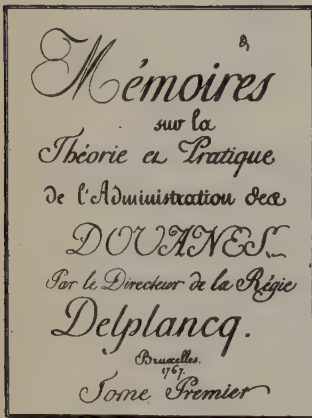 Mémoires
sur la
Théorie et Pratique
de l'Administration des
DOUANES
Par le Directeur de la Régie
Delplancq.
Bruxelles.
1767.
Tome Premier